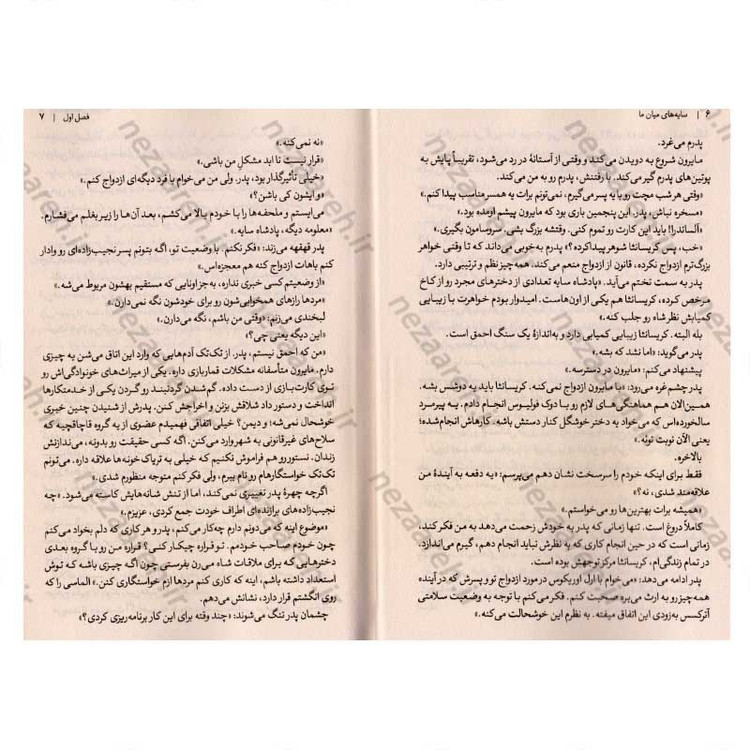 ۶ | سایه‌های میان ما
پدرم می‌غرد.
مایرون شروع به دویدن می‌کند و وقتی از آستانهٔ در رد می‌شود، تقریباً پایش به
پوتین‌های پدرم گیر می‌کند. با رفتنش، پدرم رو به من می‌کند.
«وقتی هر شب مچت رو با یه پسر می‌گیرم، نمی‌تونم برات یه همسر مناسب پیدا کنم.»
«مسخره نباش، پدر. این پنجمین باری بود که مایرون پیشم اومده بود.»
«آلساندرا! باید این کارت رو تموم کنی. وقتشه بزرگ بشی. سروسامون بگیری.»
«خب، پس کریسانثا شوهر پیدا کرده؟» پدرم به‌خوبی می‌داند که تا وقتی خواهر
بزرگ‌ترم ازدواج نکرده، قانون از ازدواج منعم می‌کند. همه‌چیز نظم و ترتیبی دارد.
پدر به سمت تختم می‌آید. «پادشاه سایه تعدادی از دخترهای مجرد رو از کاخ
مرخص کرده، کریسانثا هم یکی از اون‌هاست. امیدوار بودم خواهرت با زیبایی
کمیابش نظر شاه رو جلب کنه.»
بله البته. کریسانثا زیبایی کمیابی دارد و به‌اندازهٔ یک سنگ احمق است.
پدر می‌گوید: «اما نشد که بشه.»
پیشنهاد می‌کنم: «مایرون در دسترسه.»
پدر چشم‌غره می‌رود: «با مایرون ازدواج نمی‌کنه. کریسانثا باید یه دوشس بشه.
همین‌الان هم هماهنگی‌های لازم رو با دوک فولیوس انجام دادم. یه پیرمرد
سالخورده‌اس که می‌خواد یه دختر خوشگل کنار دستش باشه. کارش انجام‌شده؛
یعنی الآن نوبت توئه.»
بالاخره.
فقط برای اینکه خودم را سرسخت نشان دهم می‌پرسم: «یه دفعه به آیندهٔ من
علاقه‌مند شدی، نه؟»
«همیشه برات بهترین‌ها رو می‌خواستم.»
کاملاً دروغ است. تنها زمانی که پدر به خودش زحمت می‌دهد به من فکر کند،
زمانی است که در حین انجام کاری که به نظرش نباید انجام دهم، گیرم می‌اندازد.
در تمام زندگی‌ام، کریسانثا مرکز توجهش بوده است.
پدر ادامه می‌دهد: «می‌خوام با ارل اوریکوس در مورد ازدواج تو و پسرش که در آینده
همه‌چیز رو به ارث می‌بره صحبت کنم. فکر می‌کنم با توجه به وضعیت سلامتی
آترکسس به‌زودی این اتفاق میفته. به نظرم این خوشحالت می‌کنه.»
فصل اول | ۷
«نه نمی‌کنه.»
«قرار نیست تا ابد مشکلِ من باشی.»
«خیلی تأثیرگذار بود، پدر. ولی من می‌خوام با فرد دیگه‌ای ازدواج کنم.»
«و ایشون کی باشن؟»
می‌ایستم و ملحفه‌ها را با خودم بالا می‌کشم، بعد آن‌ها را زیر بغلم می‌فشارم.
«معلومه دیگه، پادشاه سایه.»
پدر قهقهه می‌زند: «فکر نکنم. با وضعیت تو، اگه بتونم پسر نجیب‌زاده‌ای رو وادار
کنم باهات ازدواج کنه هم معجزه‌اس.»
«از وضعیتم کسی خبری نداره، به‌جز اونایی که مستقیم بهشون مربوط می‌شه.»
«مردها رازهای همخوابی‌شون رو برای خودشون نگه نمی‌دارن.»
لبخندی می‌زنم: «وقتی من باشم، نگه می‌دارن.»
«این دیگه یعنی چی؟»
«من که احمق نیستم، پدر. از تک‌تک آدم‌هایی که وارد این اتاق می‌شن یه چیزی
دارم. مایرون متأسفانه مشکلات قماربازی داره. یکی از میراث‌های خونوادگی‌اش رو
توی کارت‌بازی از دست داده. گم‌شدن گردنبند رو گردن یکی از خدمتکارها
انداخت و دستور داد شلاقش بزنن و اخراجش کنن. پدرش از شنیدن چنین خبری
خوشحال نمی‌شه؛ و دیمن؟ خیلی اتفاقی فهمیدم عضوی از یه گروه قاچاقچیه که
سلاح‌های غیرقانونی به شهر وارد می‌کنن. اگه کسی حقیقت رو بدونه، می‌ندازنش
زندان. نستور رو هم فراموش نکنیم که خیلی به تریاک‌خونه‌ها علاقه داره. می‌تونم
تک‌تک خواستگارهام رو نام ببرم، ولی فکر کنم متوجه منظورم شدی.»
اگرچه چهرهٔ پدر تغییری نمی‌کند، اما از تنش شانه‌هایش کاسته می‌شود. «چه
نجیب‌زاده‌های برازنده‌ای اطراف خودت جمع کردی، عزیزم.»
«موضوع اینه که می‌دونم دارم چه‌کار می‌کنم، پدر و هر کاری که دلم بخواد می‌کنم
چون خودم صاحب خودمم. تو قراره چیکار کنی؟ قراره من رو با گروه بعدی
دخترهایی که برای ملاقات شاه می‌رن بفرستی چون اگه چیزی باشه که توش
استعداد داشته باشم، اینه که کاری کنم مردها ازم خواستگاری کنن.» الماسی را که
روی انگشتم قرار دارد، نشانش می‌دهم.
چشمان پدر تنگ می‌شوند: «چند وقته برای این کار برنامه‌ریزی کردی؟»
nezaareh.ir